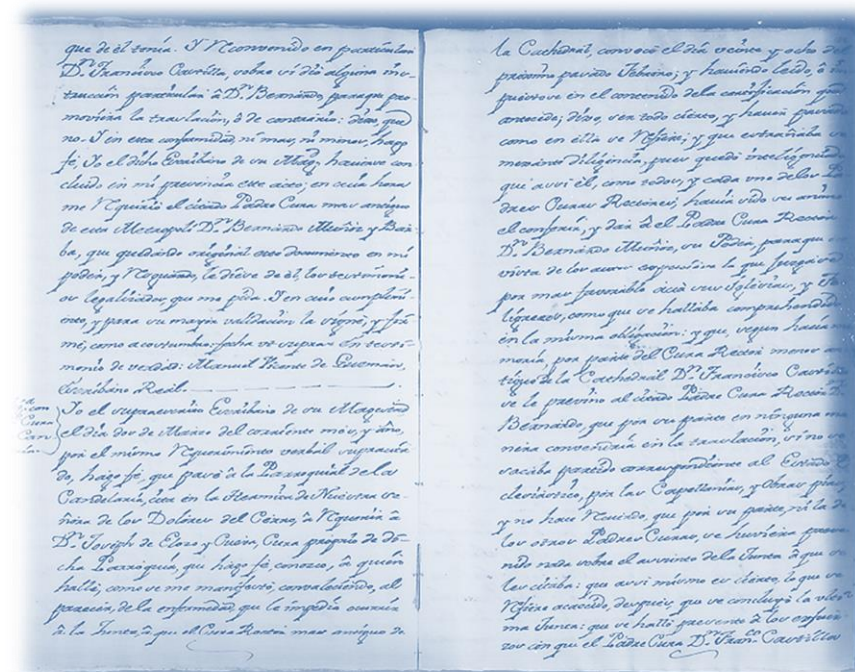 que de él tenía. Y Reconvenido en particular
Dn. Francisco Castilla, sobre si dio alguna ins-
trucción particular â Dn. Bernardo, paraque pro-
moviera la traslación, ô de contrario: dixo, que
no. Y en esta conformidad, ni mas, ni menos, hago
fé; Yo el dicho Escribano de su Magd. haverse con
cluido en mi presencia este acto; en cuia hora
me Requirió el citado Padre Cura mas antiguo
de esta Metropoli Dn. Bernardo Muñoz y Bar-
ba, que quedando original este documento en mi
poder, y Requerido, le diese de él, los testimoni-
os legalisados, que me pida. Y en cuio cumplimi-
ento, y para su mayor validacion la signé, y fir-
mé, como acostumbro: fecha ut supra. En testi-
monio de verdad: Manuel Vicente de Guzman,
Escribano Real.
Yo el supraescrito Escribano de su Magestad
el dia dos de Marzo del corriente mes, y año,
por el mismo Requerimiento verbal supracita
do, hago fé, que pasé â la Parroquial de la
Candelaria, cita en la Hermita de Nuestra se-
ñora de los Dolores del Cerro, â Requerir â
Dn. Joseph de Eloso y Cueva, Cura propio de di-
cha Parroquia, que hago fé, conozco, â quien
hallé, como se me manifestó, convaleciendo, al
parecer, de la enfermedad, que le impedia ocurrir
â la Junta, â que el Cura Rector mas antiguo de
la Cathedral, convocó el dia veinte y ocho del
próximo pasado Febrero; y haviendo leido, ê im
puestose en el contenido dela certificación que
antecede; dixo, ser todo cierto, y haver pasado
como en ella se Refiere; y que estrañaba se
mejante diligéncia, pues quedó inteligenciado
que assi él, como todos, y cada uno delos Pa
dres Curas Rectores, havia sido su animo
el conferir, y dar â el Padre Cura Rector
Dn. Bernardo Muñoz, su Poder, paraque en
vista de los autos expusiera lo que juzgase
por mas favorable acia sus Iglesias, y Fe
ligreses, como que se hallaba comprehendido
en la misma obligación: y que, segun hacia me
moria, por parte del Cura Rector menos an
tiguo de la Cathedral Dn. Francisco Castilla
se le previno al citado Padre Cura Rector Dn.
Bernardo, que por su parte en ninguna ma
nera convendria en la traslación, si no se
sacaba partido correspondiente al Estado E
clesiástico, por las Capellanias, y Obras pias
y no hace Recuerdo, que por su parte, ni la de
los otros Padres Curas, se huviera preve
nido nada sobre el assunto dela Junta â que se
les citaba: que assi mismo es cierto, lo que se
Refiere acaecido, despues, que se concluyó la ulti
ma Junta: que se halló presente â los esfuer
zos con que el Padre Cura Dn. Franco. Castilla